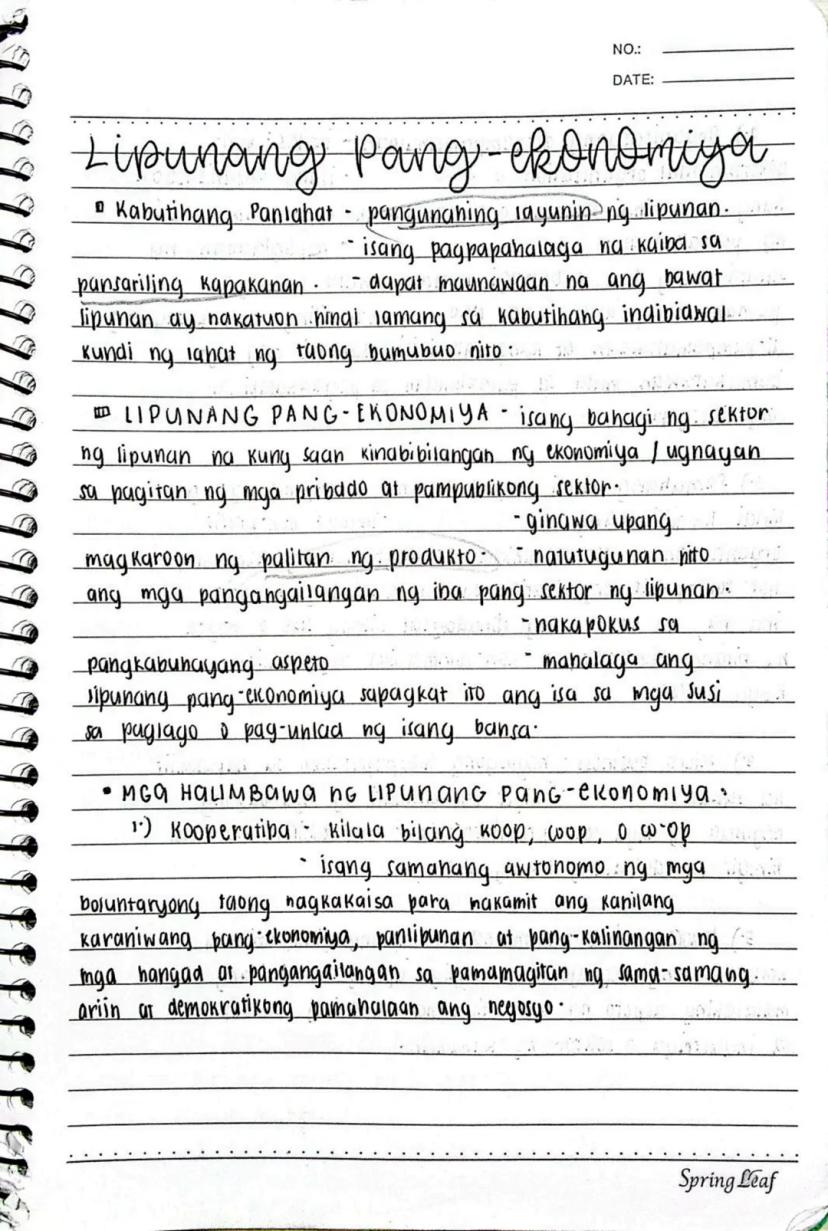 NO.:
DATE:
Lipunang Pang-ekonomiya
Kabutihang Panlahat - pangunahing layunin ng lipunan.
- isang pagpapahalaga na kaiba sa
pansariling kapakanan. - dapat maunawaan na ang bawat
lipunan ay nakatuon hindi lamang sa kabutihang indibidwal
kundi ng lahat ng taong bumubuo nito.
LIPUNANG PANG-EKONOMIYA - isang bahagi ng sektor
ng lipunan na kung saan kinabibilangan ng ekonomiya / ugnayan
sa pagitan ng mga pribado at pampublikong sektor.
- ginawa upang
magkaroon ng palitan ng produkto. - natutugunan nito
ang mga pangangailangan ng iba pang sektor ng lipunan.
- nakapokus sa
pangkabuhayang aspeto - mahalaga ang
lipunang pang-ekonomiya sapagkat ito ang isa sa mga susi
sa paglago o pag-unlad ng isang bansa.
• MGA HALIMBAWA NG LIPUNANG PANG-EKONOMIYA:
1.) Kooperatiba - kilala bilang koop, coop, o co-op
- isang samahang awtonomo ng mga
boluntaryong taong nagkakaisa para makamit ang kanilang
karaniwang pang-ekonomiya, panlipunan at pang-kalinangan ng
mga hangad at pangangailangan sa pamamagitan ng sama-samang
ariin at demokratikong pamahalaan ang negosyo.
Spring Leaf